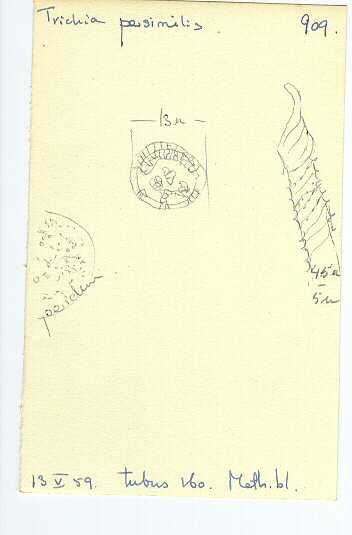 Trichia persimilis. 909.
13 µ
45 µ
5 µ
peridium
13 V 59. tubus 160. Meth. bl.